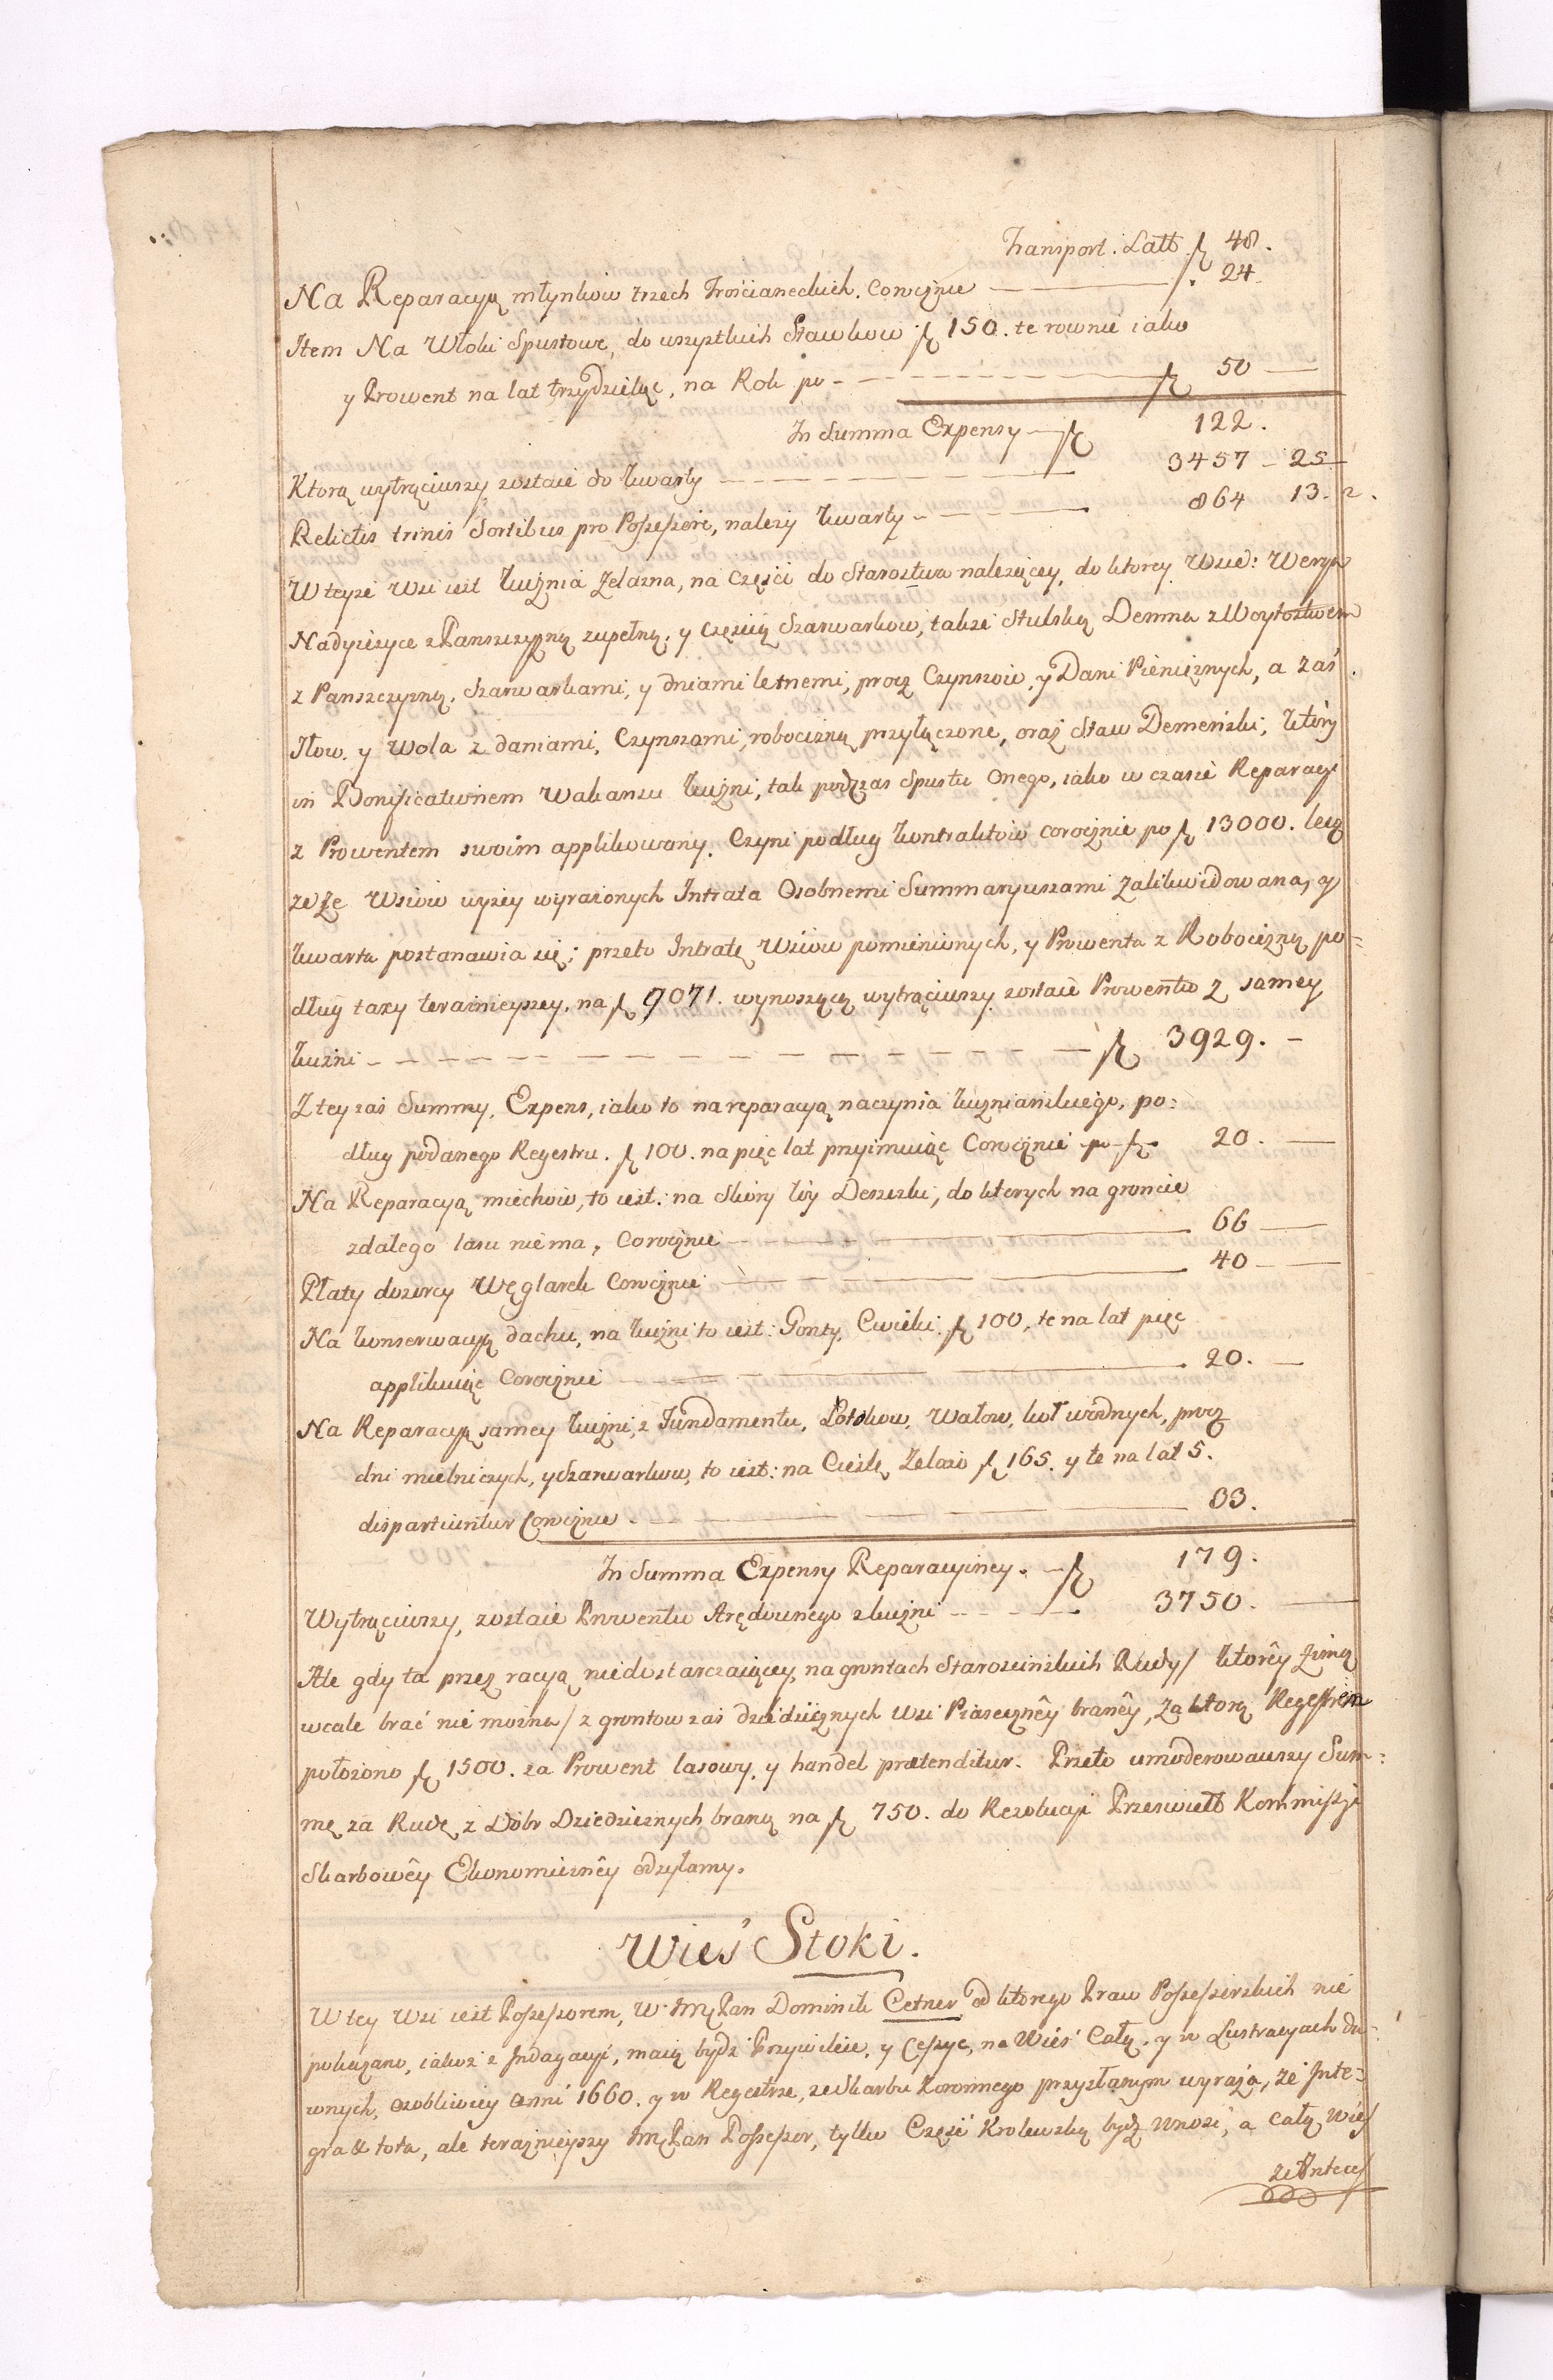 Transport. Latt. fl 48.
Na Reparacyą młynkow trzech Trościaneckich. Corocznie — f. 24.
Item Na Włoki Spustowe, do wszystkich Stawkow fl 150. te rownie iako
y Prowent na lat trzy dzieląc, na Rok po — fl 50 —
In Summa Expensy — fl 122.
Ktorą wytrąciwszy zostaie do kwarty — 3457 – 25
Relictis trinis Sortibus pro Possessore, należy kwarty — 864 13. 2.
W teyże Wsi iest kuźnia żelazna, na części do Starostwa należącey, do ktorey Wsie: Weryn
Nadyżyce z Panszczyzną zupełną, y częścią Szarwarkow, także Stulsko, Demna z Woytostwem
z Panszczyzną, Szarwarkami, y dniami letnemi, procz Czynszow, y Dani Pieniężnych, a zaś
Iłow. y Wola z daniami, Czynszami, robocizną przyłączone, oraz Staw Demeński, ktory
in Bonificationem Wakansu kuźni, tak podczas Spustu Onego, iako w czasie Reparacyi
z Prowentem swoim applikowany. Czyni podług kontraktow corocznie po fl 13000. lecz
że ze Wsiow wyżey wyrażonych Intrata Osobnemi Summaryuszami zalikwidowana, y
kwarta postanawia się; przeto Intratę Wsiow pomienionych, y Prowenta z Robocizną po=
dług taxy teraźnieyszey, na fl 9071. wynoszącą wytrąciwszy zostaie Prowentu z samey
kuźni — fl 3929. –
Z tey zaś Summy, Expens, iako to na reparacyą naczynia kuźnianskiego, po=
dług podanego Regestru. fl 100. na pięc lat przyimuiąc Corocznie po fl. 20. —
Na Reparacyą miechow, to iest: na Skory łoy Deszczki, do ktorych na groncie
zdałego lasu niema, Corocznie — 66 —
Płaty dozorcy Węglarek Corocznie — 40 —
Na konserwacyą dachu, na kuźni to iest: Gonty, Cwieki. fl 100, te na lat pięc
applikuiąc Corocznie — 20. —
Na Reparacyą samey kuźni, z Fundamentu, Potokow, Wałow, koł wodnych, procz
dni mielniczych, y Szarwarkow, to iest: na Cieslę Zelazo fl 165. y te na lat 5.
dispartiuntur Corocznie — 33.
In Summa Expensy Reparacyiney. — fl 179.
Wytrąciwszy, zostaie Prowentu Arędownego z kuźni — 3750. —
Ale gdy ta przez racyą niedostarczaiącey, na grontach Starościnskich Rudy/ ktorêy zimą
wcale brać nie można/ z grontow zaś dziedzicznych Wsi Piasecznêy branêy, za ktorą Regestrem
położono fl 1500. za Prowent lasowy, y handel prætenditur. Przeto umoderowawszy Sum=
mę za Rudę z Dobr Dziedzicznych braną na fl 750. do Rezolucyi Przeswiett Kommissyi
Skarbowêy Ekonomicznêy odsyłamy.
Wieś Stoki.
W tey Wsi iest Possessorem, W. JMć Pan Dominik Cetner od ktorego Praw Possessorskich nie
pokazano, iakoż z Indagacyi, maią bydź Przywileie, y Cessye, na Wieś Całą, y w Lustracyach da=
wnych, osobliwiey Anni 1660. y w Regestrze, ze Skarbu Koronnego przysłanym wyraża, że Inte=
gra & tota, ale teraźnieyszy JMć Pan Possessor, tylko Część Krolewską bydź wnosi, a całą Wieś
ze Antece